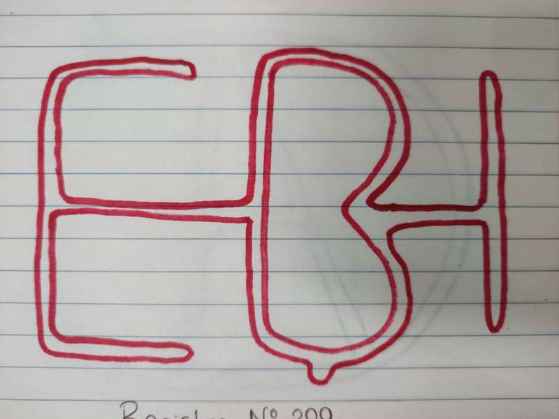 EBH
Register Nº 209